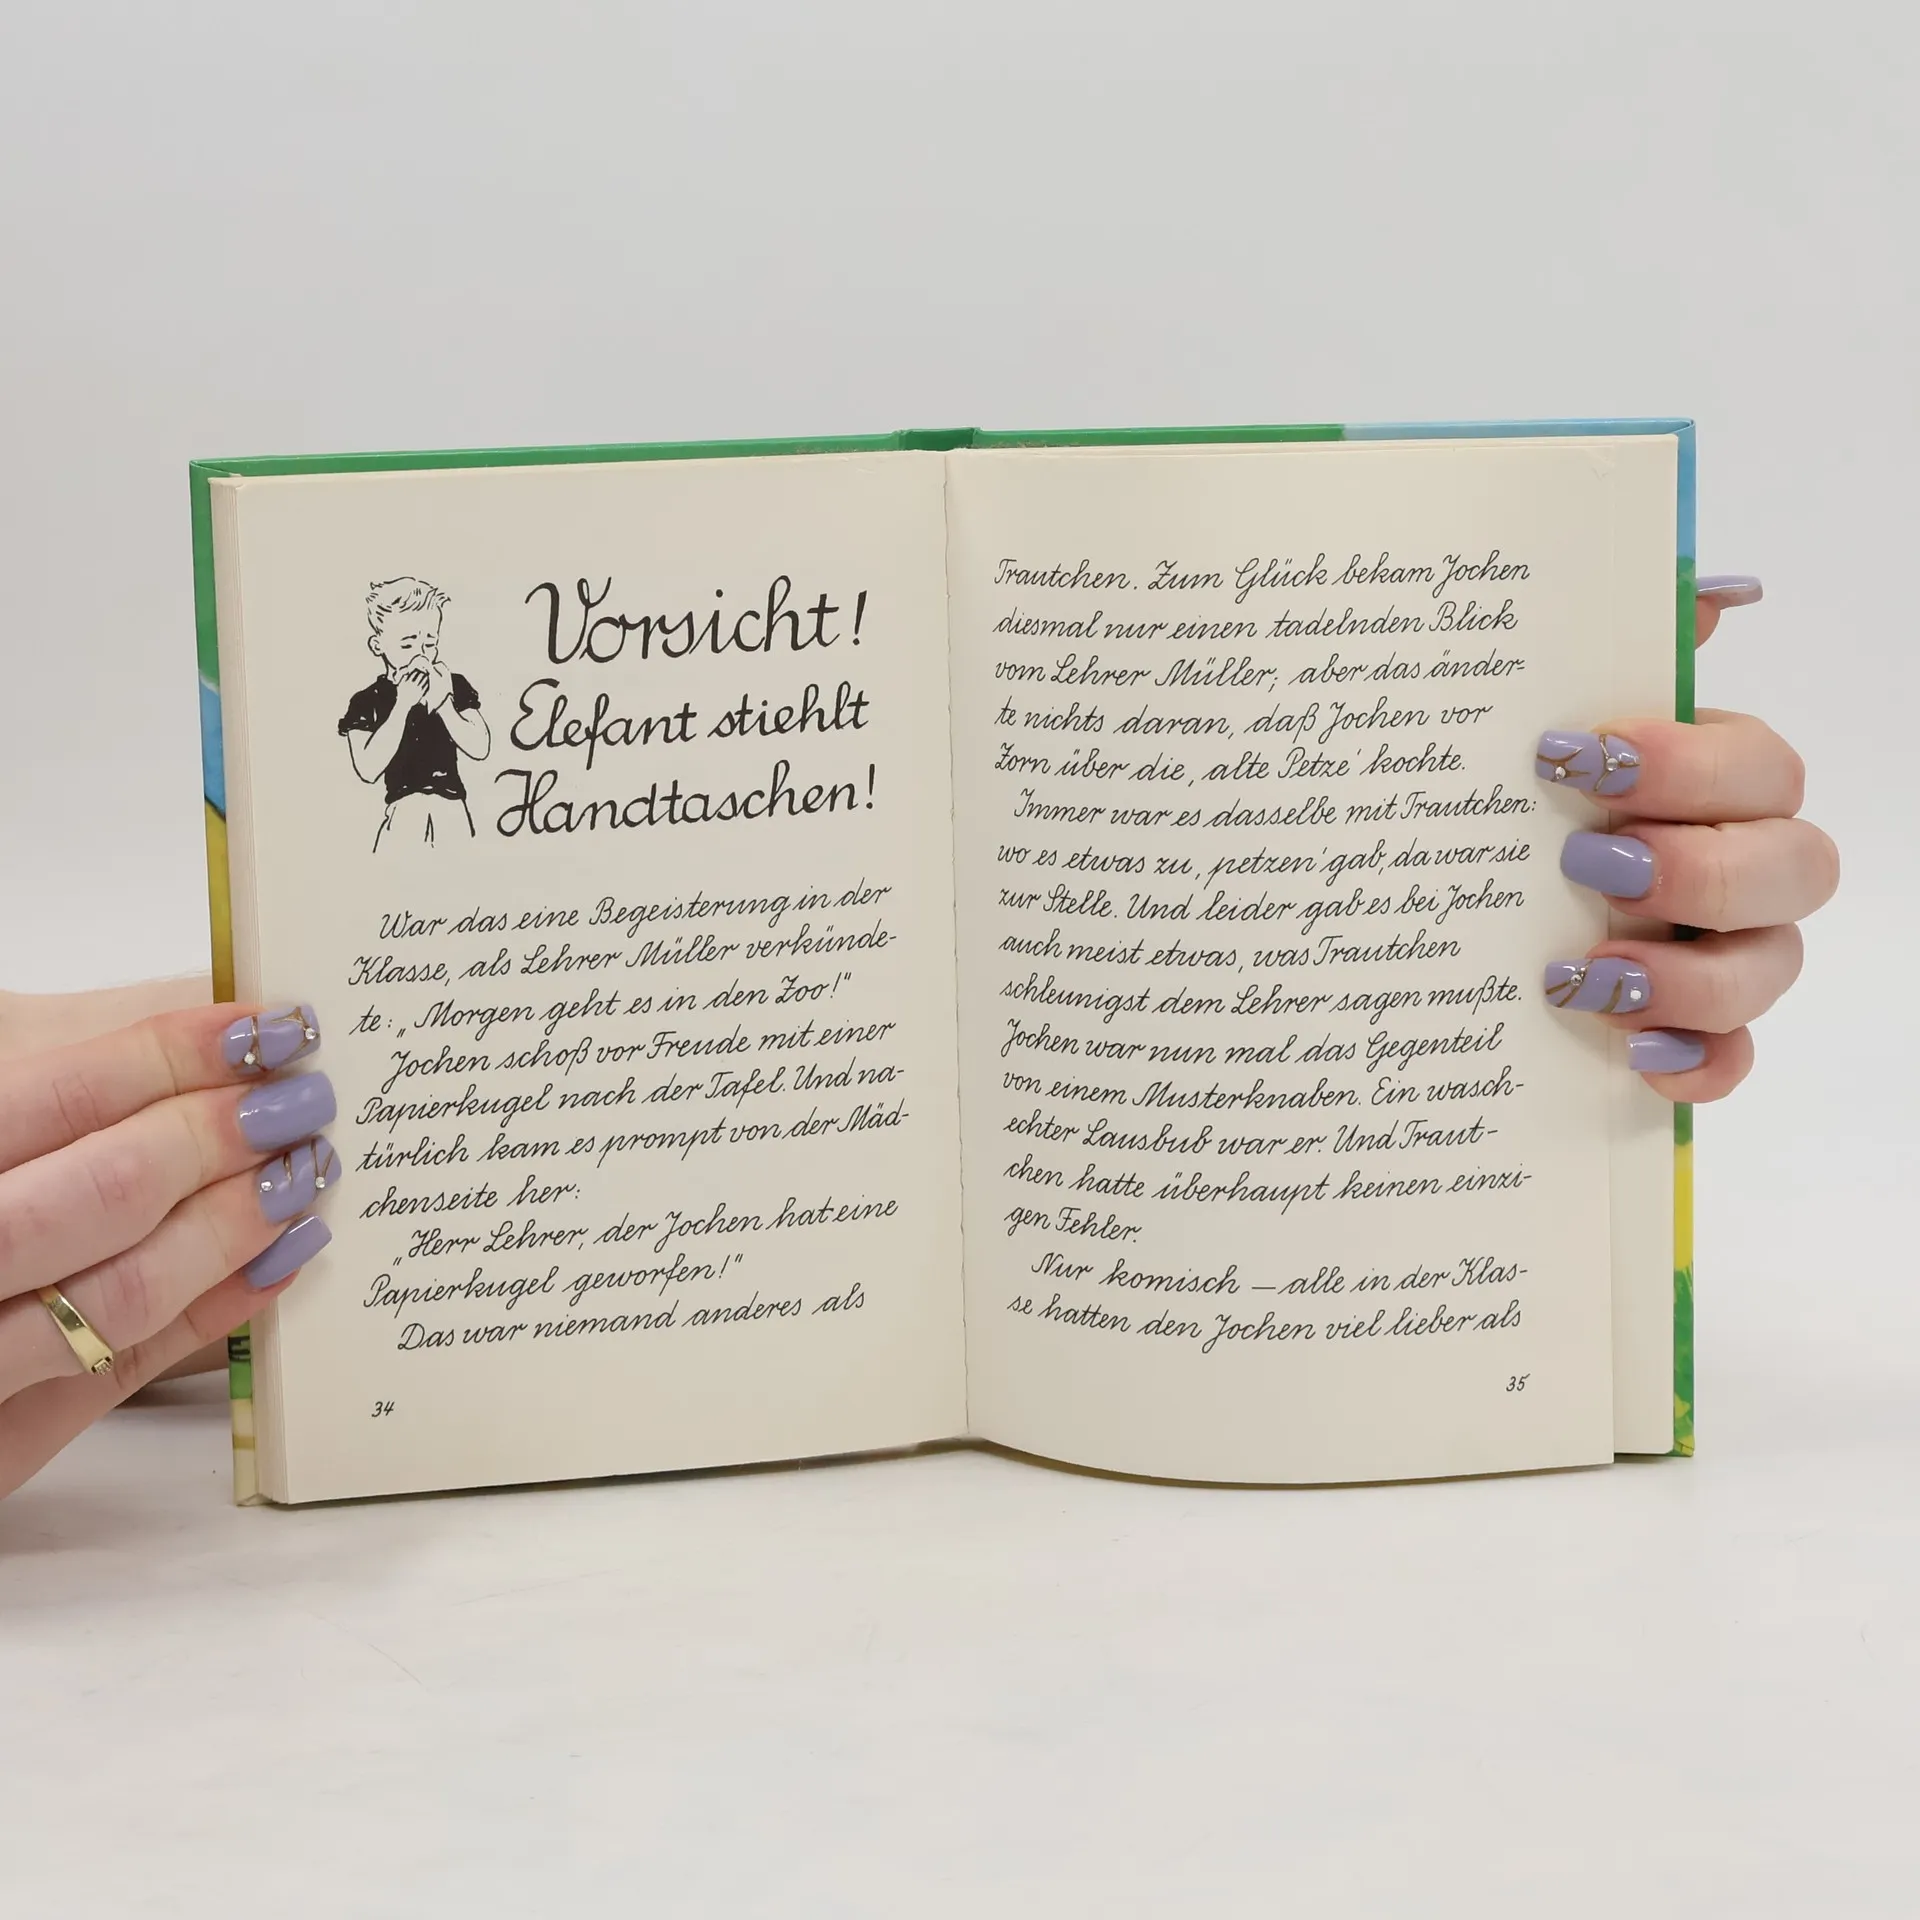 Vorsicht!
Elefant stiehlt
Handtaschen!
War das eine Begeisterung in der
Klasse, als Lehrer Müller verkünde-
te: „Morgen geht es in den Zoo!"
Jochen schoß vor Freude mit einer
Papierkugel nach der Tafel. Und na-
türlich kam es prompt von der Mäd-
chenseite her:
„Herr Lehrer, der Jochen hat eine
Papierkugel geworfen!"
Das war niemand anderes als
34
Trautchen. Zum Glück bekam Jochen
diesmal nur einen tadelnden Blick
vom Lehrer Müller; aber das änder-
te nichts daran, daß Jochen vor
Zorn über die ‚alte Petze' kochte.
Immer war es dasselbe mit Trautchen:
wo es etwas zu ‚petzen' gab, da war sie
zur Stelle. Und leider gab es bei Jochen
auch meist etwas, was Trautchen
schleunigst dem Lehrer sagen mußte.
Jochen war nun mal das Gegenteil
von einem Musterknaben. Ein wasch-
echter Lausbub war er. Und Traut-
chen hatte überhaupt keinen einzi-
gen Fehler.
Nur komisch — alle in der Klas-
se hatten den Jochen viel lieber als
35